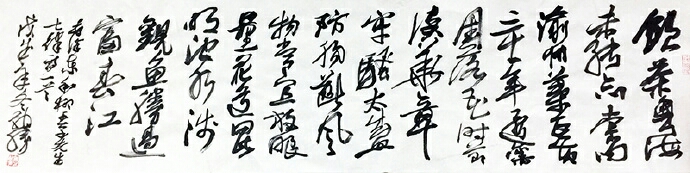 飲茶粤海
未能忘索句
渝州葉正黄
三十一年還舊
国落花时节
读华章
牢骚太盛
防腸斷风
物长宜放眼
量莫道昆
明池水浅
觀鱼勝過
富春江
毛泽东和柳亚子先生
七律诗一首